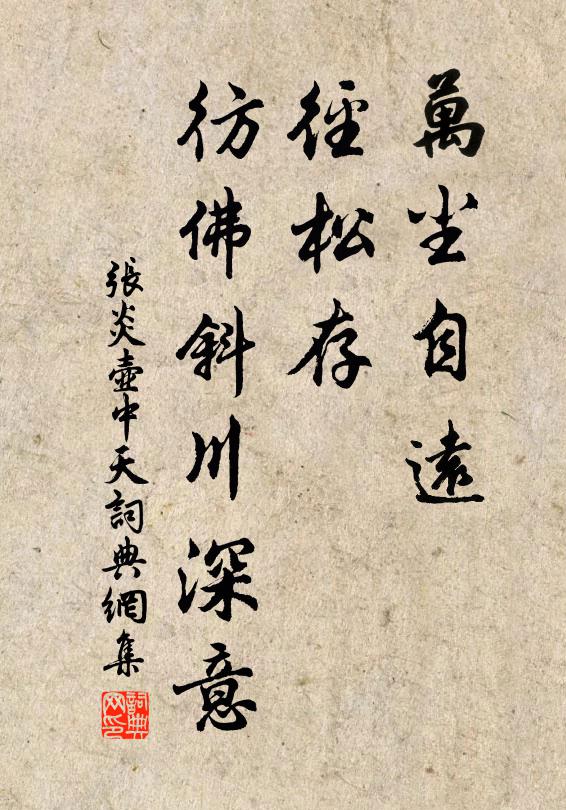 萬尘自遠
徑松存
彷佛斜川深意
張炎壺中天詞典網集
詞典网印